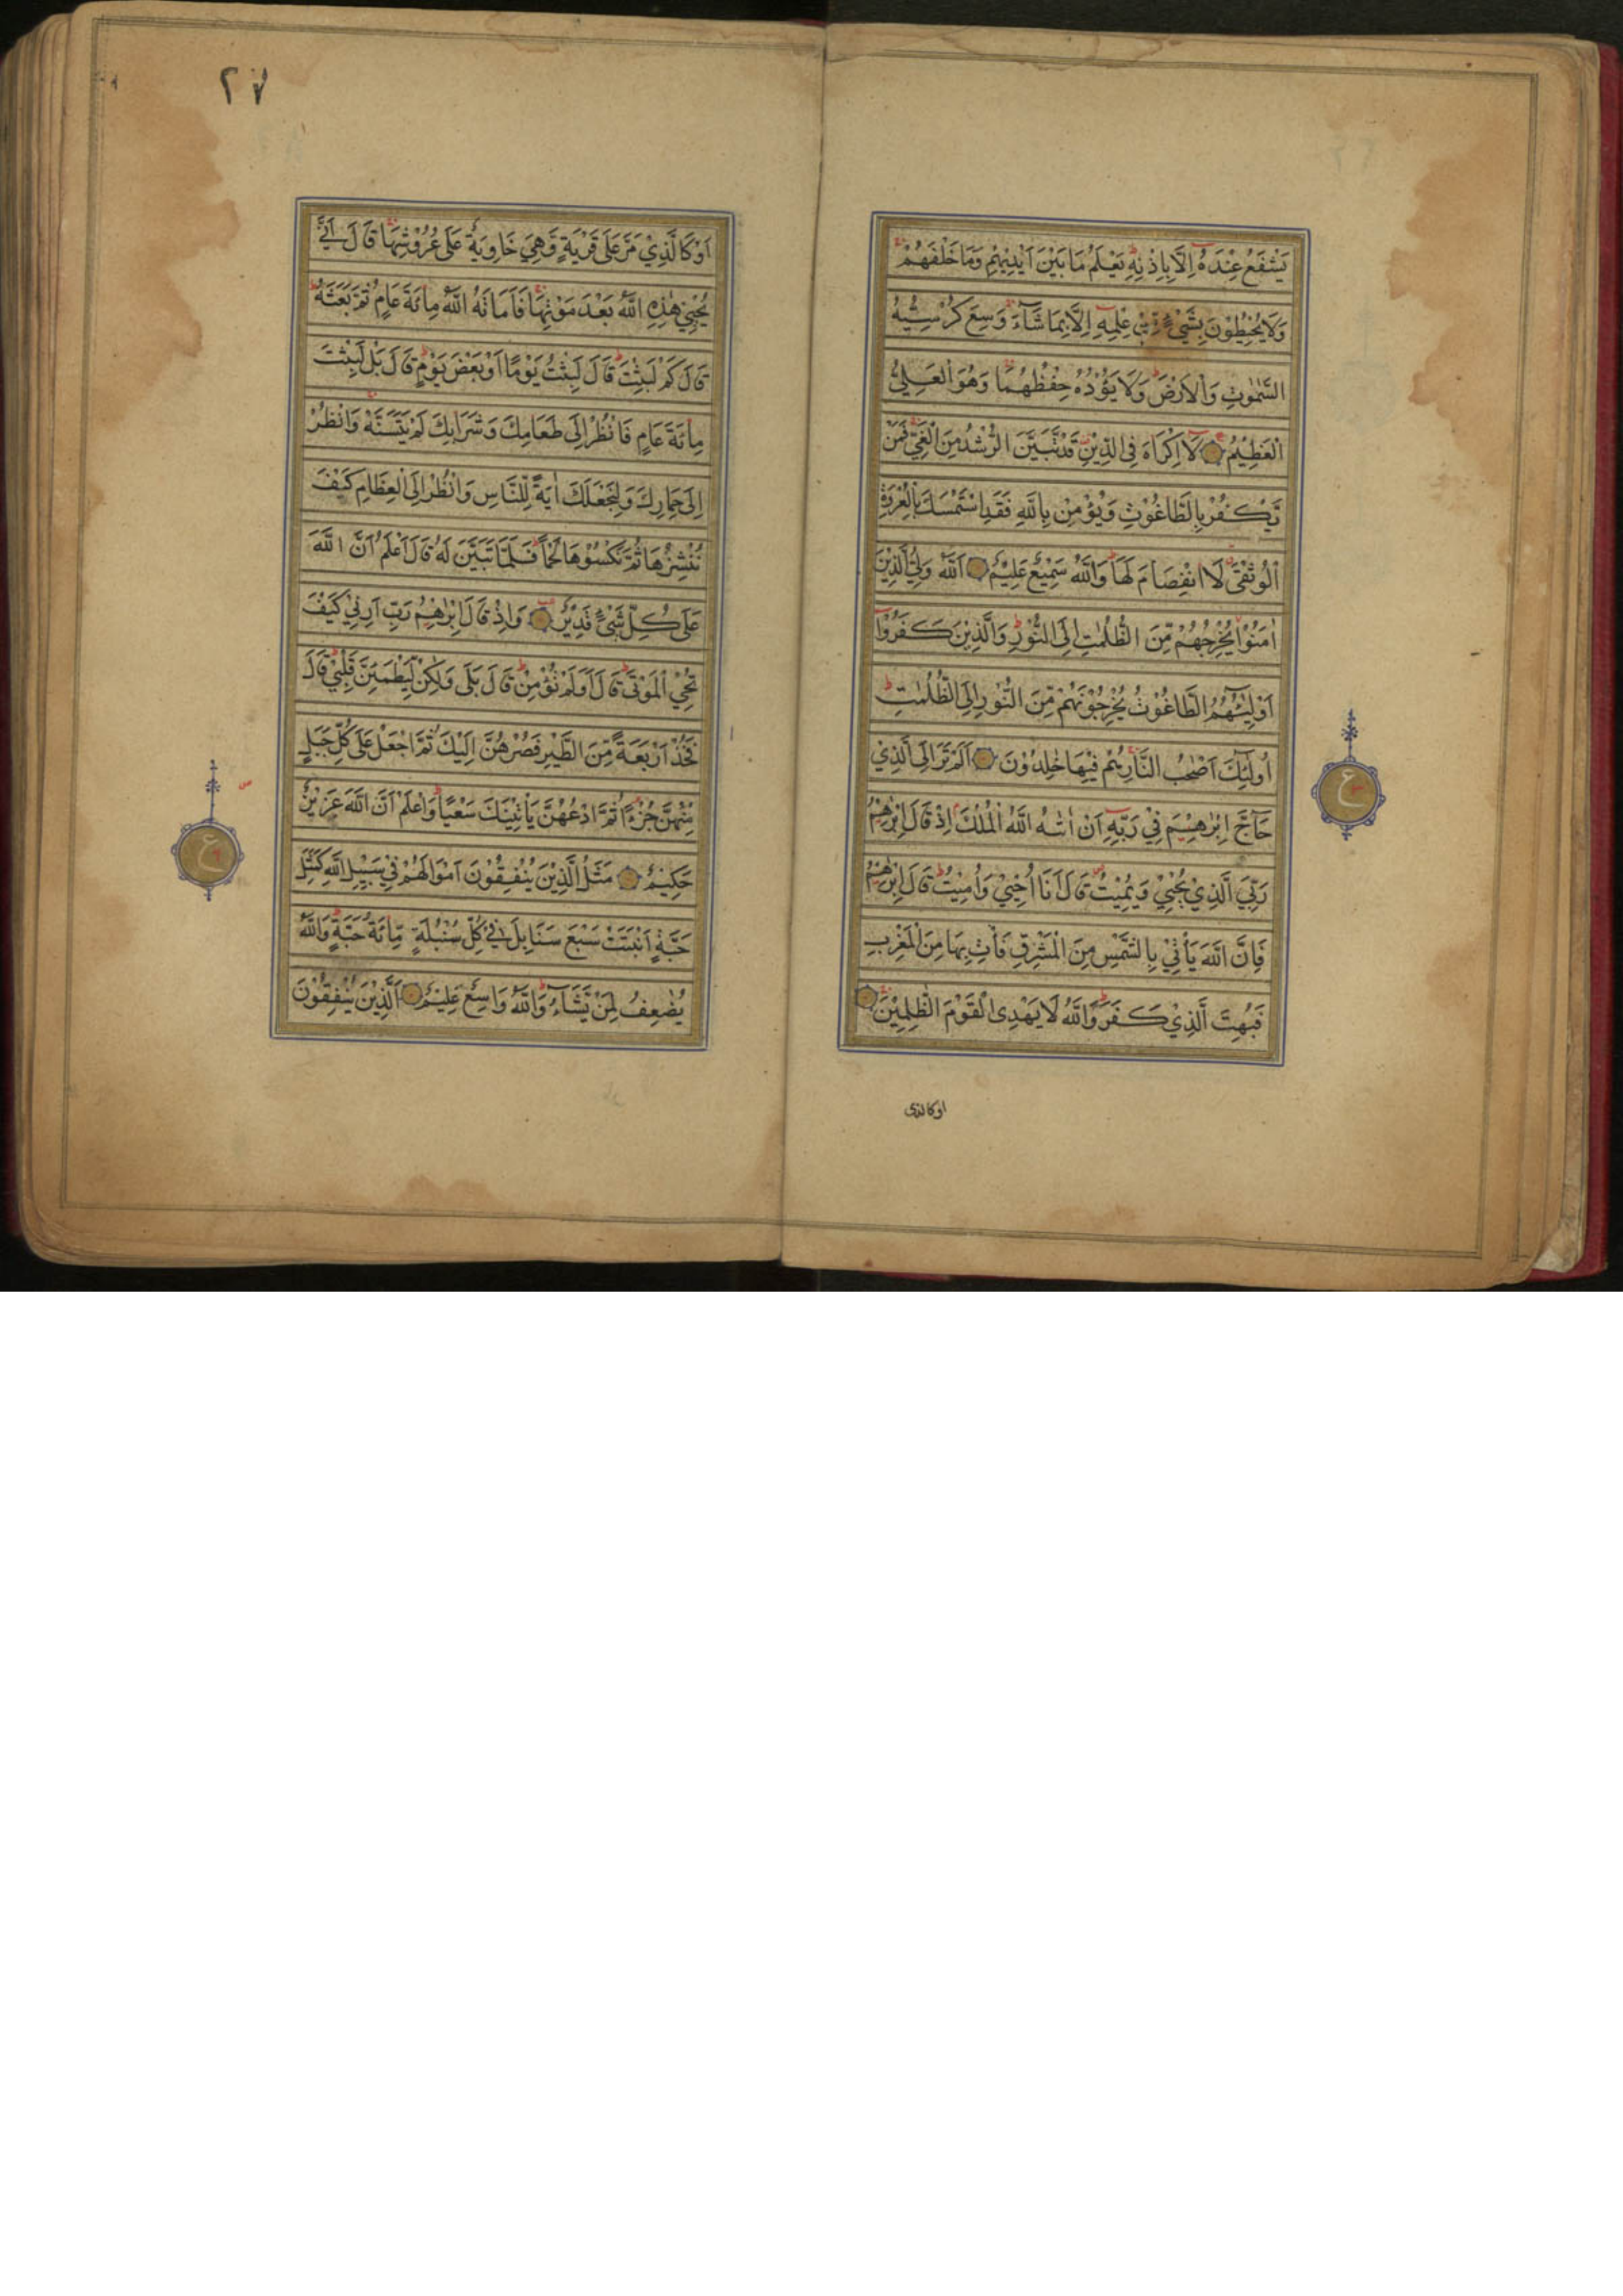 يَشْفَعُ عِنْدَهُ اِلَّا بِاِذْنِهٖ يَعْلَمُ مَا بَيْنَ اَيْدِيْهِمْ وَمَا خَلْفَهُمْ
وَلَا يُحِيْطُوْنَ بِشَيْءٍ مِّنْ عِلْمِهٖ اِلَّا بِمَا شَآءَ وَسِعَ كُرْسِيُّهُ
السَّمٰوٰتِ وَالْاَرْضَ وَلَا يَؤُدُهٗ حِفْظُهُمَا وَهُوَ الْعَلِيُّ
الْعَظِيْمُ لَا اِكْرَاهَ فِي الدِّيْنِ قَدْ تَّبَيَّنَ الرُّشْدُ مِنَ الْغَيِّ فَمَنْ
يَّكْفُرْ بِالطَّاغُوْتِ وَيُؤْمِنْ بِاللّٰهِ فَقَدِ اسْتَمْسَكَ بِالْعُرْوَةِ
الْوُثْقٰى لَا انْفِصَامَ لَهَا وَاللّٰهُ سَمِيْعٌ عَلِيْمٌ اَللّٰهُ وَلِيُّ الَّذِيْنَ
اٰمَنُوْا يُخْرِجُهُمْ مِّنَ الظُّلُمٰتِ اِلَى النُّوْرِ وَالَّذِيْنَ كَفَرُوْا
اَوْلِيٰٓئُهُمُ الطَّاغُوْتُ يُخْرِجُوْنَهُمْ مِّنَ النُّوْرِ اِلَى الظُّلُمٰتِ
اُولٰٓئِكَ اَصْحٰبُ النَّارِ هُمْ فِيْهَا خٰلِدُوْنَ اَلَمْ تَرَ اِلَى الَّذِيْ
حَآجَّ اِبْرٰهٖيْمَ فِيْ رَبِّهٖ اَنْ اٰتٰىهُ اللّٰهُ الْمُلْكَ اِذْ قَالَ اِبْرٰهٖيْمُ
رَبِّيَ الَّذِيْ يُحْيٖيْ وَيُمِيْتُ قَالَ اَنَا اُحْيٖيْ وَاُمِيْتُ قَالَ اِبْرٰهٖيْمُ
فَاِنَّ اللّٰهَ يَأْتِيْ بِالشَّمْسِ مِنَ الْمَشْرِقِ فَأْتِ بِهَا مِنَ الْمَغْرِبِ
فَبُهِتَ الَّذِيْ كَفَرَ وَاللّٰهُ لَا يَهْدِى الْقَوْمَ الظّٰلِمِيْنَ
اوكالذى
ع
٢٧
اَوْ كَالَّذِيْ مَرَّ عَلٰى قَرْيَةٍ وَّهِيَ خَاوِيَةٌ عَلٰى عُرُوْشِهَا قَالَ اَنّٰى
يُحْيٖيْ هٰذِهِ اللّٰهُ بَعْدَ مَوْتِهَا فَاَمَاتَهُ اللّٰهُ مِائَةَ عَامٍ ثُمَّ بَعَثَهٗ
قَالَ كَمْ لَبِثْتَ قَالَ لَبِثْتُ يَوْمًا اَوْ بَعْضَ يَوْمٍ قَالَ بَلْ لَبِثْتَ
مِائَةَ عَامٍ فَانْظُرْ اِلٰى طَعَامِكَ وَشَرَابِكَ لَمْ يَتَسَنَّهْ وَانْظُرْ
اِلٰى حِمَارِكَ وَلِنَجْعَلَكَ اٰيَةً لِّلنَّاسِ وَانْظُرْ اِلَى الْعِظَامِ كَيْفَ
نُنْشِزُهَا ثُمَّ نَكْسُوْهَا لَحْمًا فَلَمَّا تَبَيَّنَ لَهٗ قَالَ اَعْلَمُ اَنَّ اللّٰهَ
عَلٰى كُلِّ شَيْءٍ قَدِيْرٌ وَاِذْ قَالَ اِبْرٰهٖيْمُ رَبِّ اَرِنِيْ كَيْفَ
تُحْيِ الْمَوْتٰى قَالَ اَوَلَمْ تُؤْمِنْ قَالَ بَلٰى وَلٰكِنْ لِّيَطْمَئِنَّ قَلْبِيْ قَالَ
فَخُذْ اَرْبَعَةً مِّنَ الطَّيْرِ فَصُرْهُنَّ اِلَيْكَ ثُمَّ اجْعَلْ عَلٰى كُلِّ جَبَلٍ
مِّنْهُنَّ جُزْءًا ثُمَّ ادْعُهُنَّ يَأْتِيْنَكَ سَعْيًا وَاعْلَمْ اَنَّ اللّٰهَ عَزِيْزٌ
حَكِيْمٌ مَثَلُ الَّذِيْنَ يُنْفِقُوْنَ اَمْوَالَهُمْ فِيْ سَبِيْلِ اللّٰهِ كَمَثَلِ
حَبَّةٍ اَنْبَتَتْ سَبْعَ سَنَابِلَ فِيْ كُلِّ سُنْبُلَةٍ مِّائَةُ حَبَّةٍ وَاللّٰهُ
يُضٰعِفُ لِمَنْ يَّشَآءُ وَاللّٰهُ وَاسِعٌ عَلِيْمٌ اَلَّذِيْنَ يُنْفِقُوْنَ
ع